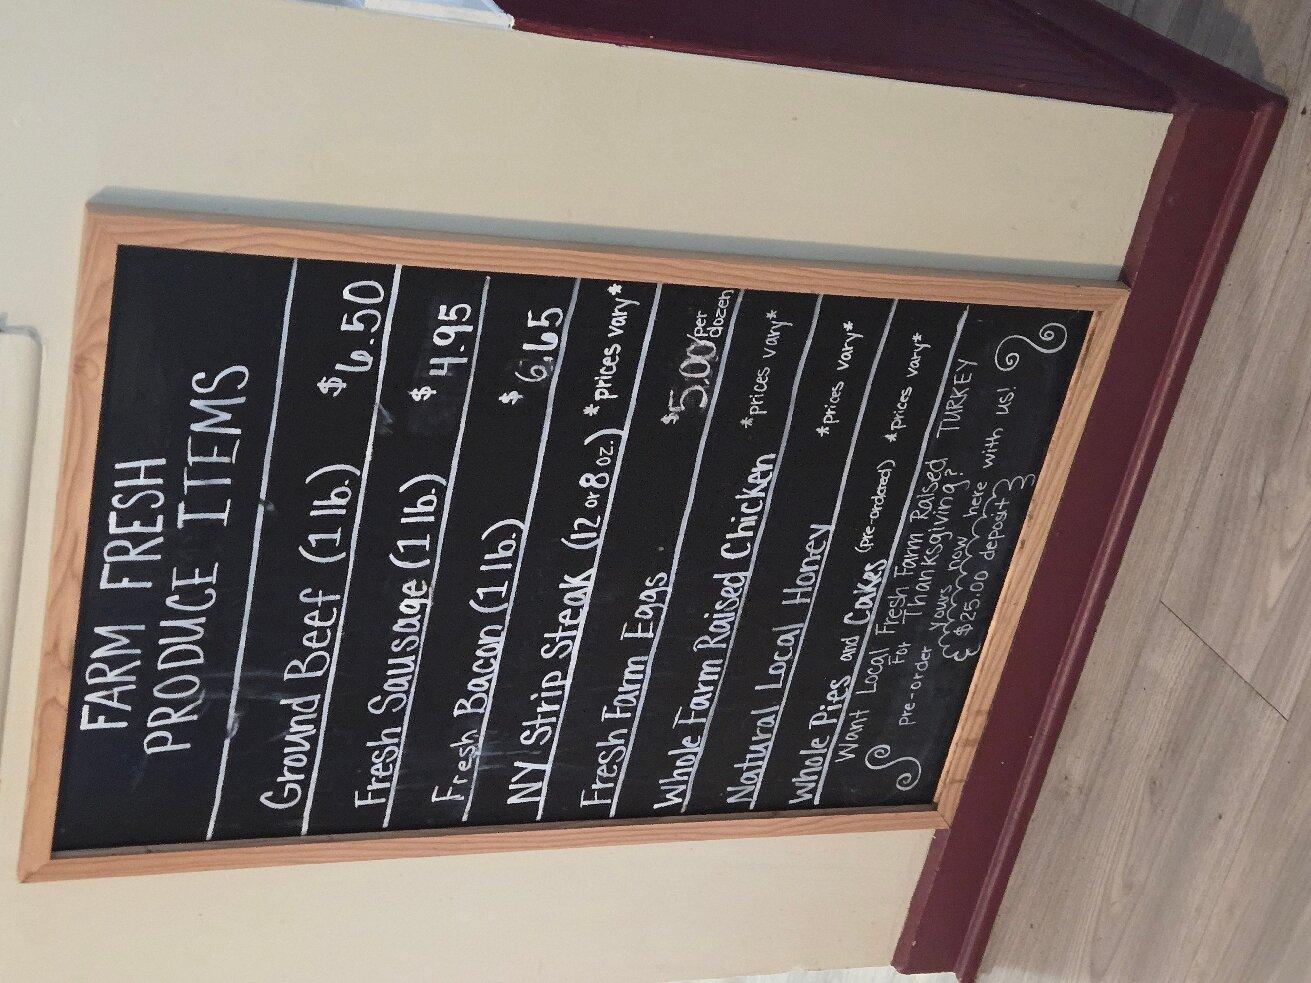 FARM FRESH
PRODUCE ITEMS
Ground Beef (1 lb.) $6.50
Fresh Sausage (1 lb.) $4.95
Fresh Bacon (1 lb.) $6.65
NY Strip Steak (12 or 8 oz.) *prices vary*
Fresh Farm Eggs $5.00/per dozen
Whole Farm Raised Chicken *prices vary*
Natural Local Honey *prices vary*
Whole Pies and Cakes (pre-ordered) *prices vary*
Want Local Fresh Farm Raised TURKEY
For Thanksgiving?
pre-order yours now here with us!
$25.00 deposit